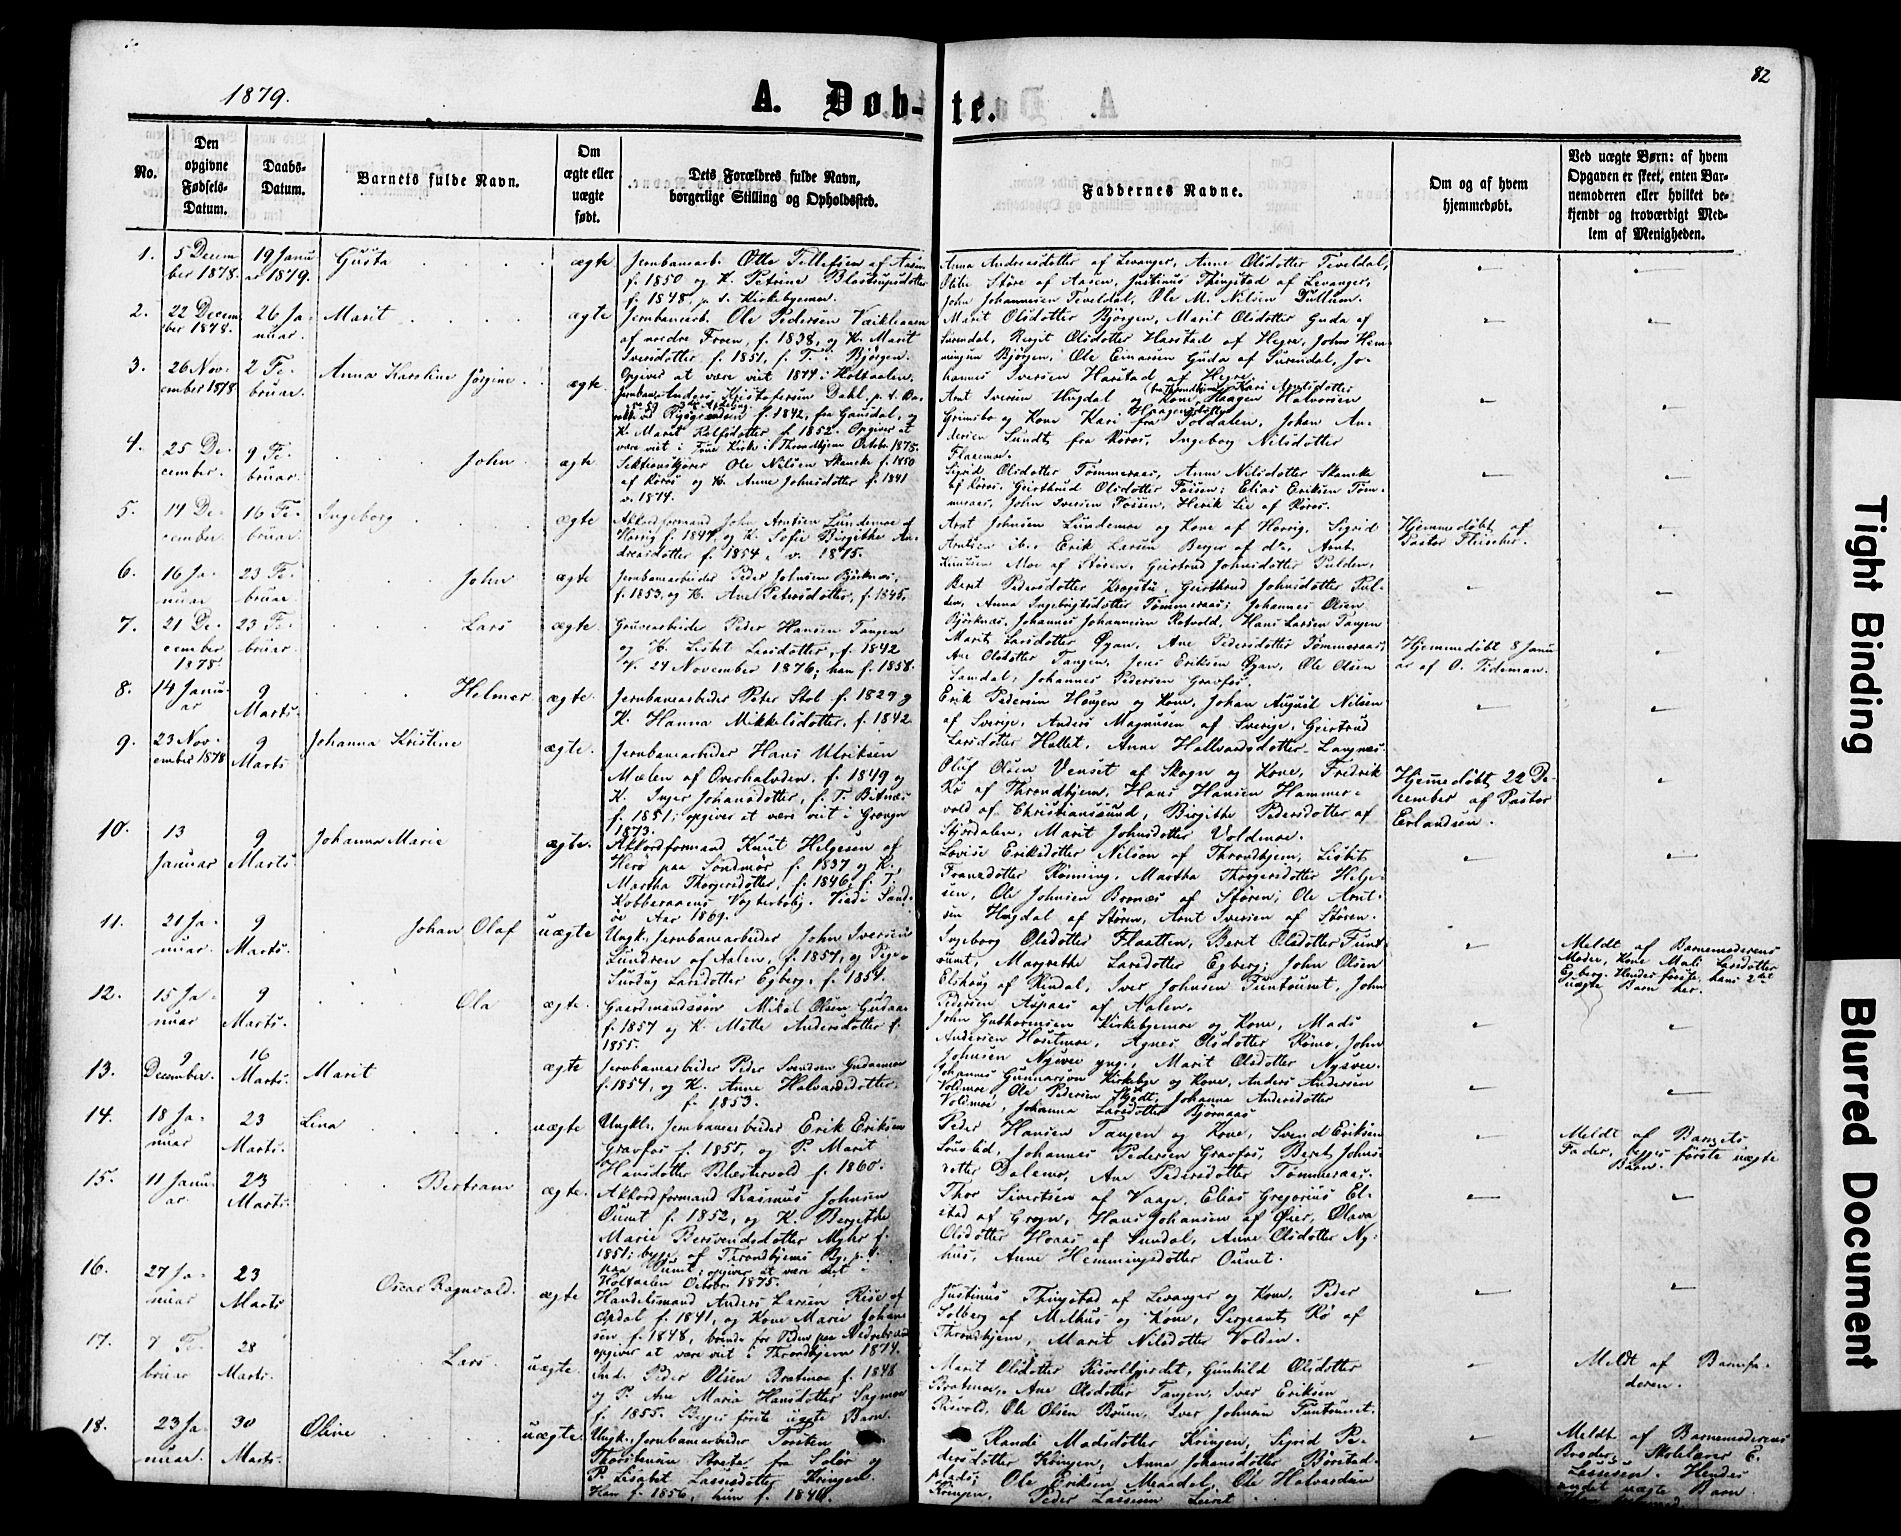 82
1879.
A. Døb-te.
No.
Den opgivne Fødsels-Datum.
Daabs-Datum.
Barnets fulde Navn.
Om ægte eller uægte født.
Dets Forældres fulde Navn, borgerlige Stilling og Opholdssted.
Faddernes Navne.
Om og af hvem hjemmedøbt.
Ved uægte Børn: af hvem Opgaven er skeet, enten Barnemoderen eller hvilket bekjendt og troværdigt Medlem af Menigheden.
1. 5 Decem
ber 1878. 19 Janu
ar 1879. Gusta ægte
Jernbanearb. Otto Tellefsen af Aasen
f. 1850 og K. Petrine
f. 1848, p. t. Kirkebymoen.
Anna Andreasdotter af Levanger, Anne Olsdotter Teveldal,
Støre af Aasen, Justinus Thingstad af Levanger,
John Johannesen Teveldal, Ole M. Nilsen Dullum.
2. 22 Decem
ber 1878. 26 Ja-
nuar. Marit ægte
Jernbanearb. Ole Pedersen
f. 1838, og K. Marit
Iversdotter f. 1851, f. T. Bjørgen.
Opgiver at være viet 1874 i Holtaalen.
Marit Olsdotter Bjørgen, Marit Olsdotter Guda af
Surendal, Berget Olsdotter Harstad af Hegre, John Hem-
mingsen Bjørgen, Ole Einarsen Guda af Surendal, Jo-
hannes Iversen Harstad af Hegre.
3. 26 Nov-
ember 1878 2 Fe-
bruar. Anna Karoline Jørgine ægte
Anders Kristofersen Dahl, p. t.
f. 1842, fra Gausdal, og
K. Marit Rolfsdotter f. 1852. Opgiver at
være viet i Frue Kirke i Throndhjem Octobr. 1875.
Arnt Iversen Hugdal og Kone Kari Arntsdotter
Haagen Halvorsen
Grimsbo og Kone Kari Haagensdotter fra Foldalen, Johan An-
dersen Sundt, fra Røros, Ingeborg Nilsdotter
Flaamoe.
4. 25 De-
cember. 9 Fe-
bruar. John ægte
Ole Nilsen Skancke f. 1850
af Røros og K. Anne Johnsdotter f. 1841
v. 1874.
Sigrid Olsdotter Tømmeraas, Anne Nilsdotter Skancke
af Røros, Geirthrud Olsdotter Fossen; Elias Eriksen Tøm-
meraas, John Iversen Fossen, Henrik Lie af Røros.
5. 14 De-
cember. 16 Fe-
bruar. Ingeborg ægte
Akkordformand John Arntsen Lundemoe af
Horrig f. 1847, og K. Sofie Birgithe An-
dreasdotter f. 1854. v. 1875.
Arnt Johnsen Lundemoe og Kone af Horrig, Sigrid
Arntsen ib., Erik Larsen Berger af do, Arnt
Knudsen Moe af Støren, Geirtrud Johnsdotter Pulden.
Hjemmedøbt af
Pastor Fleischer.
6. 16 Ja-
nuar 23 Fe-
bruar. John ægte
Jernbanearbeider Peder Johnsen Bjørknæs,
f. 1853, og K. Ane Petersdotter, f. 1845.
Beret Pedersdotter Krogstu, Geirthrud Johnsdotter Pul-
den, Anna Ingebrigtsdotter Tømmeraas; Johannes Olsen
Bjørknæs, Johannes Johannesen Rotvold, Hans Larsen Tangen
7. 21 De-
cember
1878 23 Fe-
bruar. Lars ægte
Grubearbeider Peder Hansen Tangen
og K. Lisbet Larsdotter, f. 1842
v. 24 November 1876; han f. 1858.
Marit Larsdotter Øyan, Ane Pedersdotter Tømmeraas,
Ane Olsdotter Tangen, Jens Eriksen Øyan, Ole Olsen
Samdal, Johannes Pedersen Gravfos.
Hjemmedøbt 8 Janu
ar af O. Tideman.
8. 14 Janu-
ar 9
Marts. Helmer ægte.
Jernbanearbeider Peter Stol f. 1829 og
K. Hanna Mikkelsdotter, f. 1842
Erik Pedersen Haugen og Kone, Johan August Nilsen
af Sverige, Anders Magnusen af Sverige, Geirtrud
Larsdotter Hallet, Anne Hallvardsdotter Langnæs.
9. 23 Nov-
ember 1878 9
Marts Johanna Kristine ægte.
Jernbanearbeider Hans Ulriksen
Mælen af Overhalvden, f. 1849 og
K. Inger Johansdotter, f. T. Bitnæs
f. 1851; opgiver at være viet i Grongn
1873.
Oluf Olsen Venset af Skogn og Kone, Fredrik
Rø af Throndhjem, Hans Hansen Hammer-
vold af Christiansund, Birgithe Pedersdotter af
Stjørdalen, Marit Johnsdotter Voldmoe.
Hjemmedøbt 22 De-
cember af Pastor
Erlandsen.
10. 13
Januar 9
Marts. Johanna Marie ægte.
Akkordformand Knut Helgesen af
Herø paa Søndmør f. 1837 og K.
Martha Thorgersdotter, f. 1846, f. T.
Viede i Sand-
ø Aar 1869.
Lovise Eriksdotter Nilson af Throndhjem, Lisbet
Franzdotter Rønning, Martha Thorgersdotter Helge-
sen, Ole Johnsen Bronæs af Støren, Ole Arnt-
sen Hugdal af Støren, Arnt Iversen af Støren.
11. 21 Ja-
nuar. 9
Marts. Johan Olaf uægte
Ungk. Jernbanearbeider John Iversen
Lundren af Aalen, f. 1857, og Pige
Larsdotter Egberg f. 1854.
Ingeborg Olsdotter Flaatten, Berit Olsdotter Tunt-
rumt, Margrethe Larsdotter Egberg; John Olsen
Elshaug af Rindal, Iver Johnsen Funtaunet, John
Pedersen Aspaas af Aalen.
Meldt af Barnemoderens
Moder, Kone Mali Larsdotter
Egberg. Hendes første, hans 2det
uægte Barn her.
12. 15 Ja-
nuar 9
Marts. Ola ægte.
Gaardmandssøn Mikal Olsen Gudaa
f. 1857 og K. Mette Andersdotter f.
1855.
John Guthormsen Kirkebymoe og Kone, Mads
Andersen Havstmoe, Agnes Olsdotter Rømo, John
Johnsen Nysvee yng., Marit Olsdotter Nysvee.
13. 9
December. 16
Marts. Marit ægte
Jernbanearbeider Peder Svendsen Gudamoe
f. 1854, og K. Anne Halvardsdotter
f. 1853.
Johannes Gunnarsøn Kirkebye og Kone, Anders Andersen
Voldmoe, Ole Pedersen Skjødt, Johanna Andersdotter
Voldmoe, Johanna Larsdotter Bjørnaas
14. 18 Ja-
nuar 23
Marts. Lina uægte
Ungkl. Jernbanearbeider Erik Eriksen
Gravfos f. 1855, og P. Marit
Hansdotter Blæstervold f. 1860.
Peder Hansen Tangen og Kone, Svend Eriksen
Johannes Pedersen Gravfos, Beret Johns-
dotter Dalemo, Ane Pedersdotter Tømmeraas.
Meldt af Barnets
Fader, begges første uægte
Barn.
15. 11 Janu-
ar 23
Marts. Bertram ægte.
Akkordformand Rasmus Johnsen
Ounet f. 1852, og K. Bergithe
Marie Bersvendsdotter Myhr f.
1851; begge af Throndhjems By, p. t.
paa Ounet; opgiver at være viet i
Holtaalen Octobr. 1875.
Thor Sivertsen af Vaage, Elias Gregorius El-
stad af Grogn, Hans Johansen af Øier, Olava
Olsdotter Hoaas af Sundal, Anne Olsdotter Ny-
hus, Anne Hemmingsdotter Ounet.
16. 27 Ja-
nuar 23
Marts Oscar Ragnvald. ægte
Handelsmand Anders Larsen Rise af
Opdal f. 1841, og Kone Marie Johan-
sen f. 1848,
opgiver at være viet i Throndhjem 1874.
Justinus Thingstad af Levanger og Kone, Peder
Solberg af Melhus og Kone, Sergeant Rø af
Throndhjem, Marit Nilsdotter Voldin.
17. 7 Fe-
bruar 28
Marts. Lars. uægte.
Ind. Peder Olsen Bratmoe f. 1848
og P. Ane Maria Hansdotter Sagmoe
f. 1855. Begges første uægte Barn.
Marit Olsdotter Risvolhjerdet, Gunhild Olsdotter
Bratmoe, Ane Olsdotter Tangen, Iver Eriksen
Risvold, Ole Olsen Bruen, Iver Johnsen Funtaunet.
Meldt af Barnefa-
deren.
18. 23 Ja-
nuar. 30
Marts. Oline uægte.
Ungk. Jernbanearbeider Torsten
Thorstensen Strate fra Solør og
P. Lisabet Lassesdotter Kringen.
Han f. 1856, hun f. 1840.
Randi Madsdotter Kringen, Sigrid Pe-
dersdotter Kringen, Anna Johansdotter Børstad-
plads, Ole Eriksen Meaadal, Ole Halvardsen
Kringen, Peder Lassesen Leiret
Meldt af Barnemoderens
Broder, Skolelærer E.
Lassesen. Hendes
andet uægte Barn
Tight Binding
Blurred Document